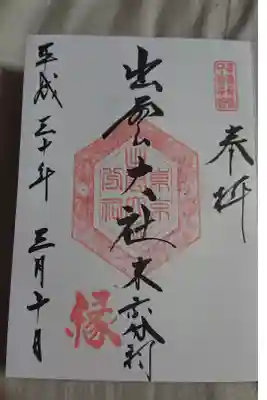 奉拝
出雲大社東京分祠
縁
平成三十年 三月十日